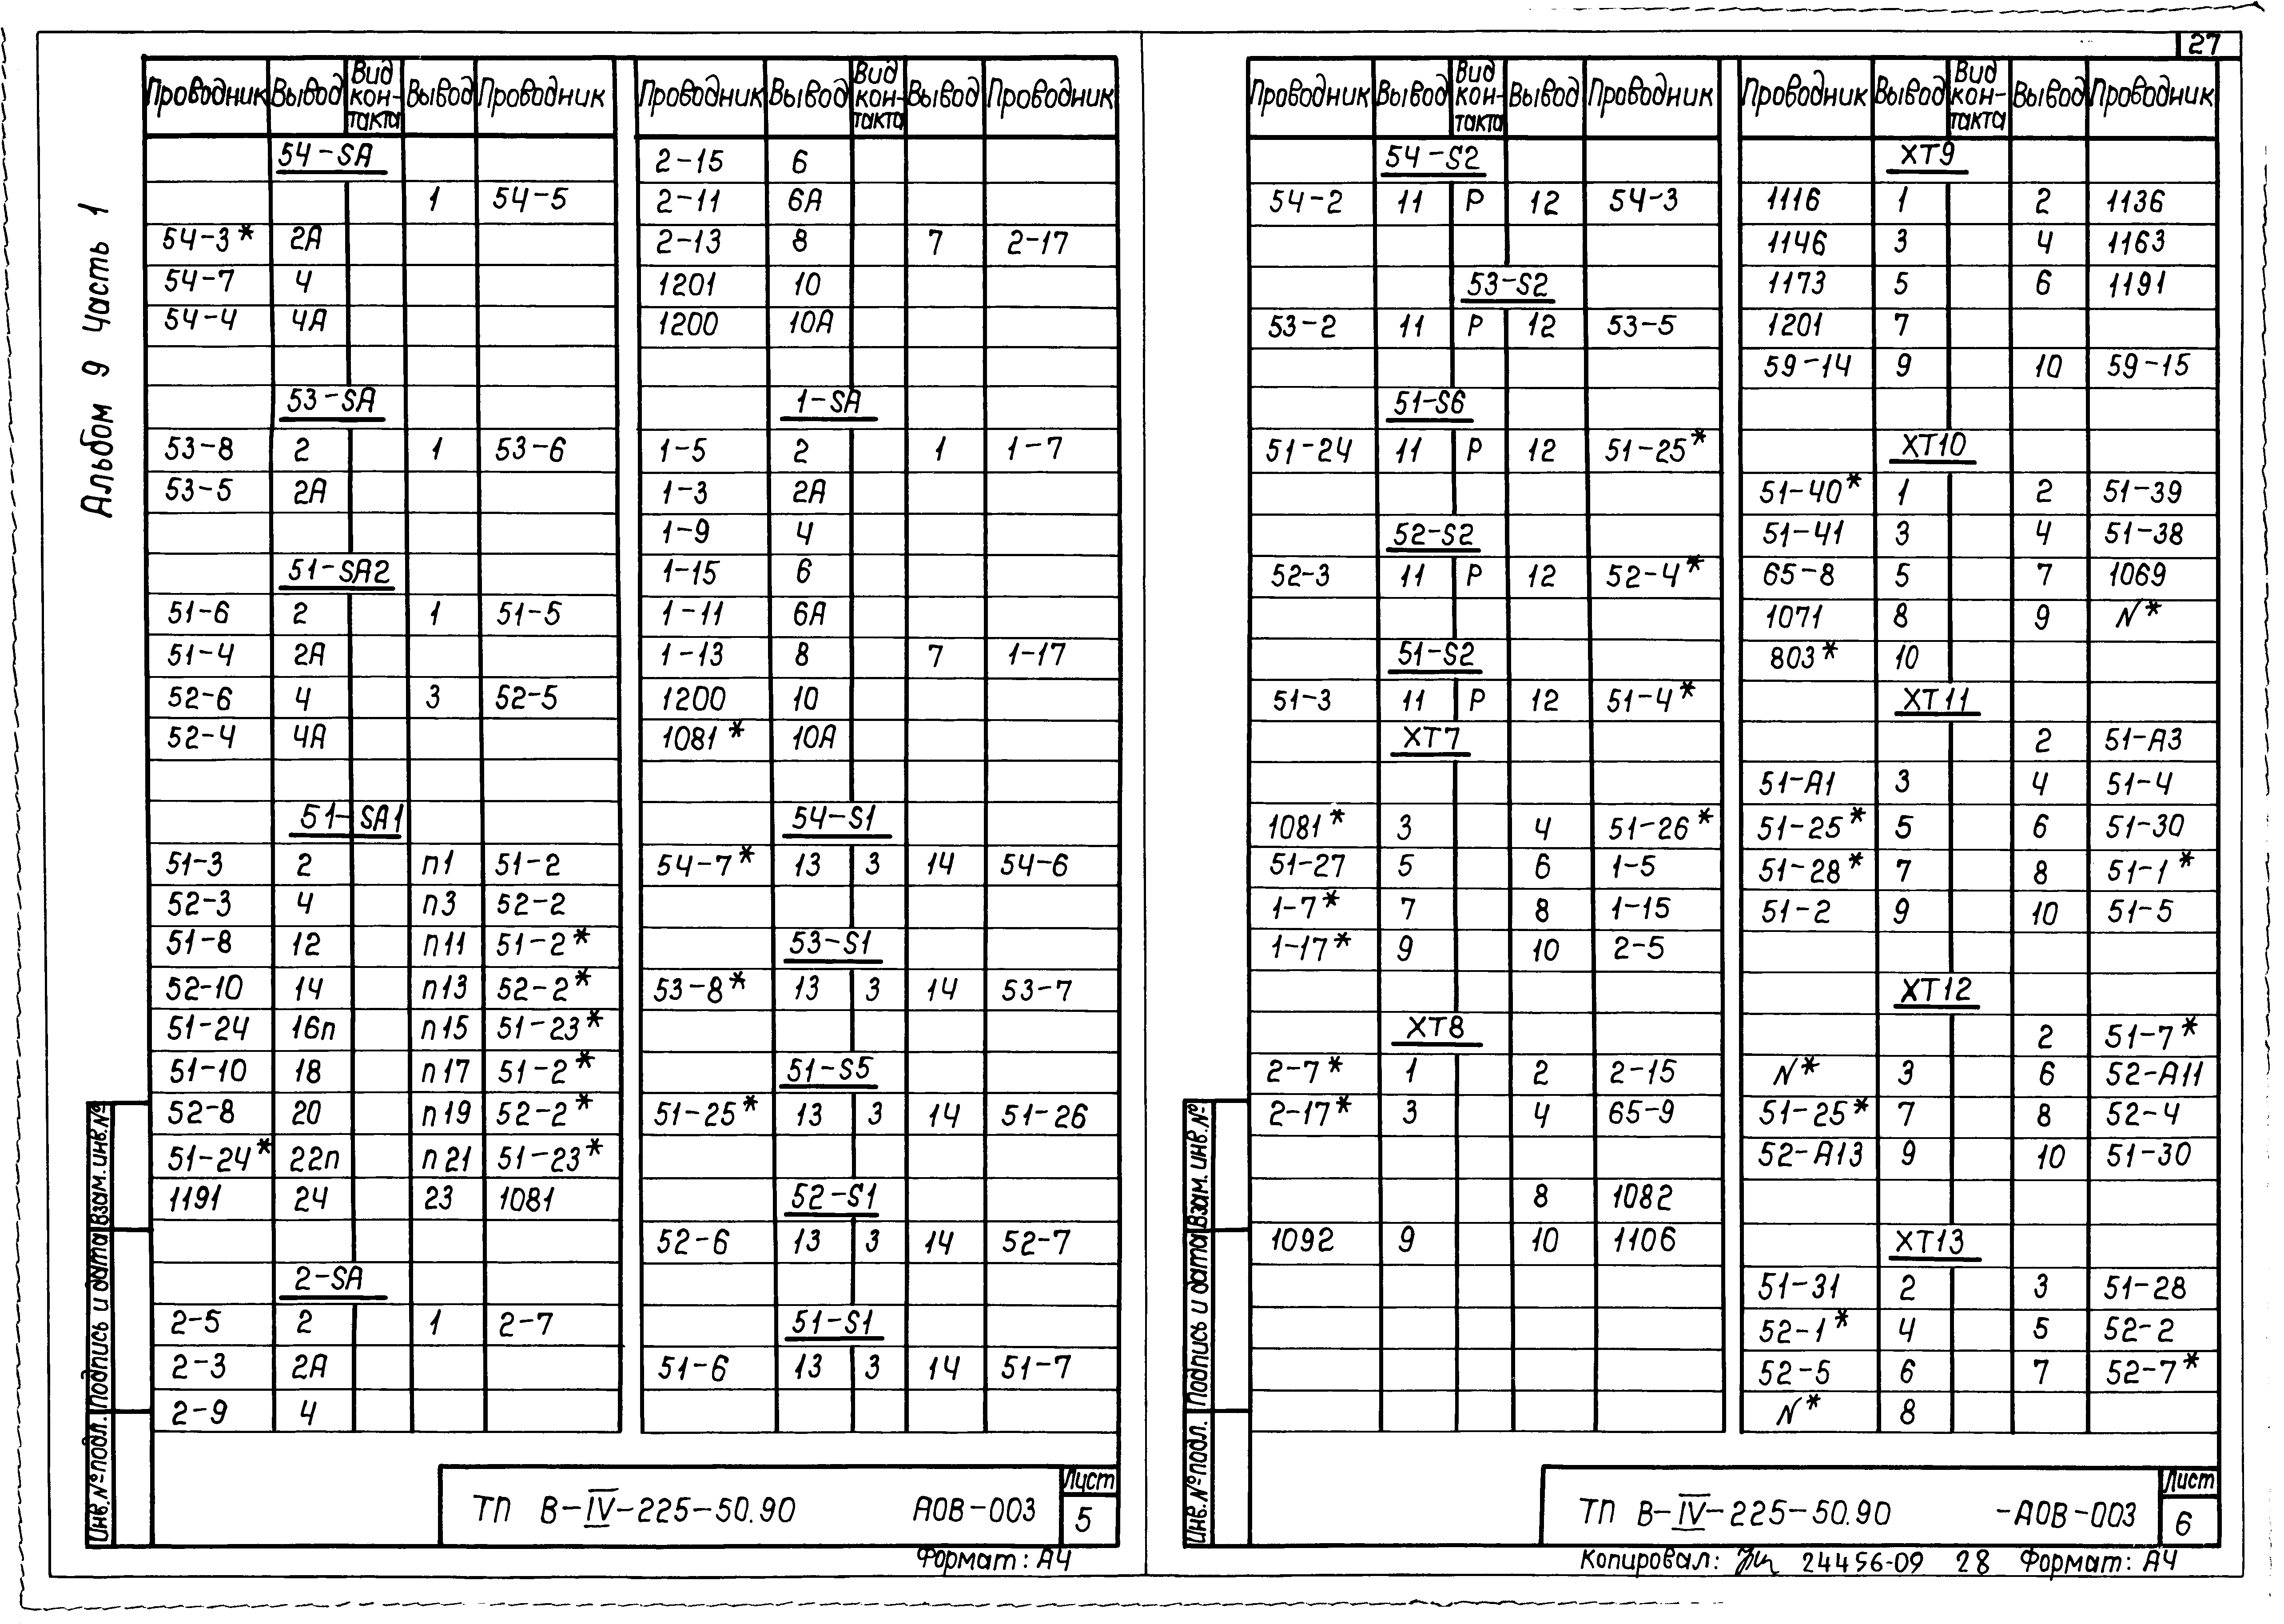 27
Альбом 9 Часть 1
Проводник Вывод Вид контакта Вывод Проводник
54-SA
1 54-5
54-3* 2А
54-7 4
54-4 4А
53-SA
53-8 2 1 53-6
53-5 2А
51-SA2
51-6 2 1 51-5
51-4 2А
52-6 4 3 52-5
52-4 4А
51-SA1
51-3 2 п1 51-2
52-3 4 п3 52-2
51-8 12 п11 51-2*
52-10 14 п13 52-2*
51-24 16п п15 51-23*
51-10 18 п17 51-2*
52-8 20 п19 52-2*
51-24* 22п п21 51-23*
1191 24 23 1081
2-SA
2-5 2 1 2-7
2-3 2А
2-9 4
Проводник Вывод Вид контакта Вывод Проводник
2-15 6
2-11 6А
2-13 8 7 2-17
1201 10
1200 10А
1-SA
1-5 2 1 1-7
1-3 2А
1-9 4
1-15 6
1-11 6А
1-13 8 7 1-17
1200 10
1081* 10А
54-S1
54-7* 13 З 14 54-6
53-S1
53-8* 13 З 14 53-7
51-S5
51-25* 13 З 14 51-26
52-S1
52-6 13 З 14 52-7
51-S1
51-6 13 З 14 51-7
Инв.№подл. Подпись и дата Взам.инв.№
ТП В-IV-225-50.90 АОВ-003
Лист
5
Формат: А4
Проводник Вывод Вид контакта Вывод Проводник
54-S2
54-2 11 Р 12 54-3
53-S2
53-2 11 Р 12 53-5
51-S6
51-24 11 Р 12 51-25*
52-S2
52-3 11 Р 12 52-4*
51-S2
51-3 11 Р 12 51-4*
XT7
1081* 3 4 51-26*
51-27 5 6 1-5
1-7* 7 8 1-15
1-17* 9 10 2-5
XT8
2-7* 1 2 2-15
2-17* 3 4 65-9
8 1082
1092 9 10 1106
Проводник Вывод Вид контакта Вывод Проводник
XT9
1116 1 2 1136
1146 3 4 1163
1173 5 6 1191
1201 7
59-14 9 10 59-15
XT10
51-40* 1 2 51-39
51-41 3 4 51-38
65-8 5 7 1069
1071 8 9 N*
803* 10
XT11
2 51-А3
51-А1 3 4 51-4
51-25* 5 6 51-30
51-28* 7 8 51-1*
51-2 9 10 51-5
XT12
2 51-7*
N* 3 6 52-А11
51-25* 7 8 52-4
52-А13 9 10 51-30
XT13
51-31 2 3 51-28
52-1* 4 5 52-2
52-5 6 7 52-7*
N* 8
Инв.№подл. Подпись и дата Взам.инв.№
ТП В-IV-225-50.90 -АОВ-003
Лист
6
Копировал: 24456-09 28 Формат: А4